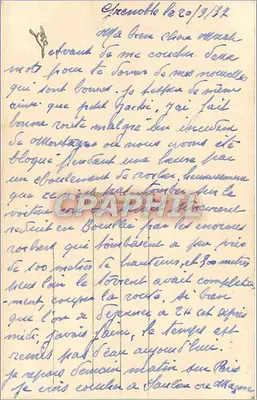 Grenoble le 20/9/37
Ma bien chère
Avant de me coucher deux
mots pour te donner de mes nouvelles
qui sont bonnes. Je espère de même
ainsi que petit j'ai fait
bonne route malgré un incident
de Montagne où nous avons été
bloqué pendant une heure par
un éboulement de rocher, heureusement
que ce pas tomber sur la
voiture
CPARHIL
réduit en Bouillie par les énormes
rochers qui tombaient à peu près
de 100 mètres de hauteurs, et 300 mètres
plus loin le torrent avait complète
ment coupé la route, si bien
que l'on a déjeuner à 2H cet après
midi, j'avais faim, le temps est
remis pas d'eau aujourd'hui.
Je repars demain matin sur Paris
je vais coucher à Saulieu ou